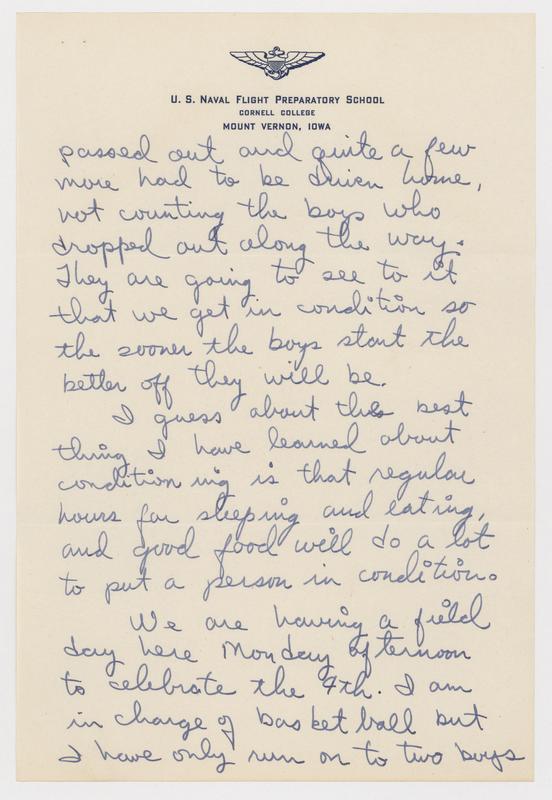 U. S. NAVAL FLIGHT PREPARATORY SCHOOL
CORNELL COLLEGE
MOUNT VERNON, IOWA
passed out and quite a few
more had to be driven home,
not counting the boys who
dropped out along the way.
They are going to see to it
that we get in condition so
the sooner the boys start the
better off they will be.
I guess about the best
thing I have learned about
conditioning is that regular
hours for sleeping and eating,
and good food will do a lot
to put a person in condition.
We are having a field
day here Monday afternoon
to celebrate the 4th. I am
in charge of basketball but
I have only run on to two boys